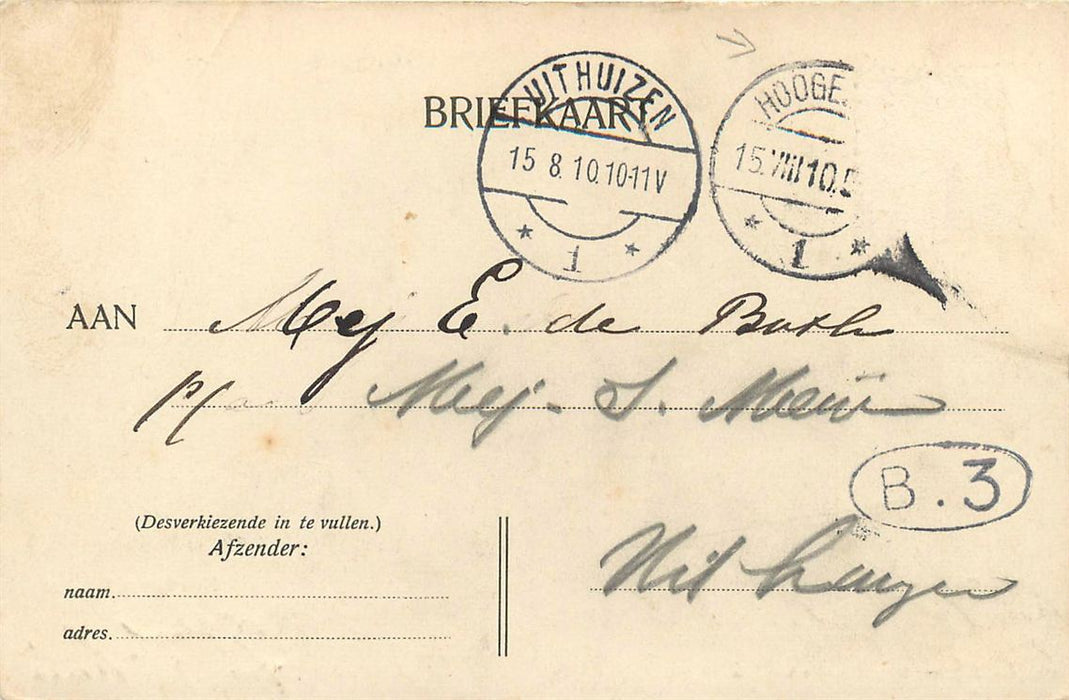 BRIEFKAART
UITHUIZEN
15 8.10.10-11V
1
HOOGE
15.VIII10.5
1
AAN Mej E. de Both
p/a Mej. S.
B.3
Uithuizen
(Desverkiezende in te vullen.)
Afzender:
naam.
adres.